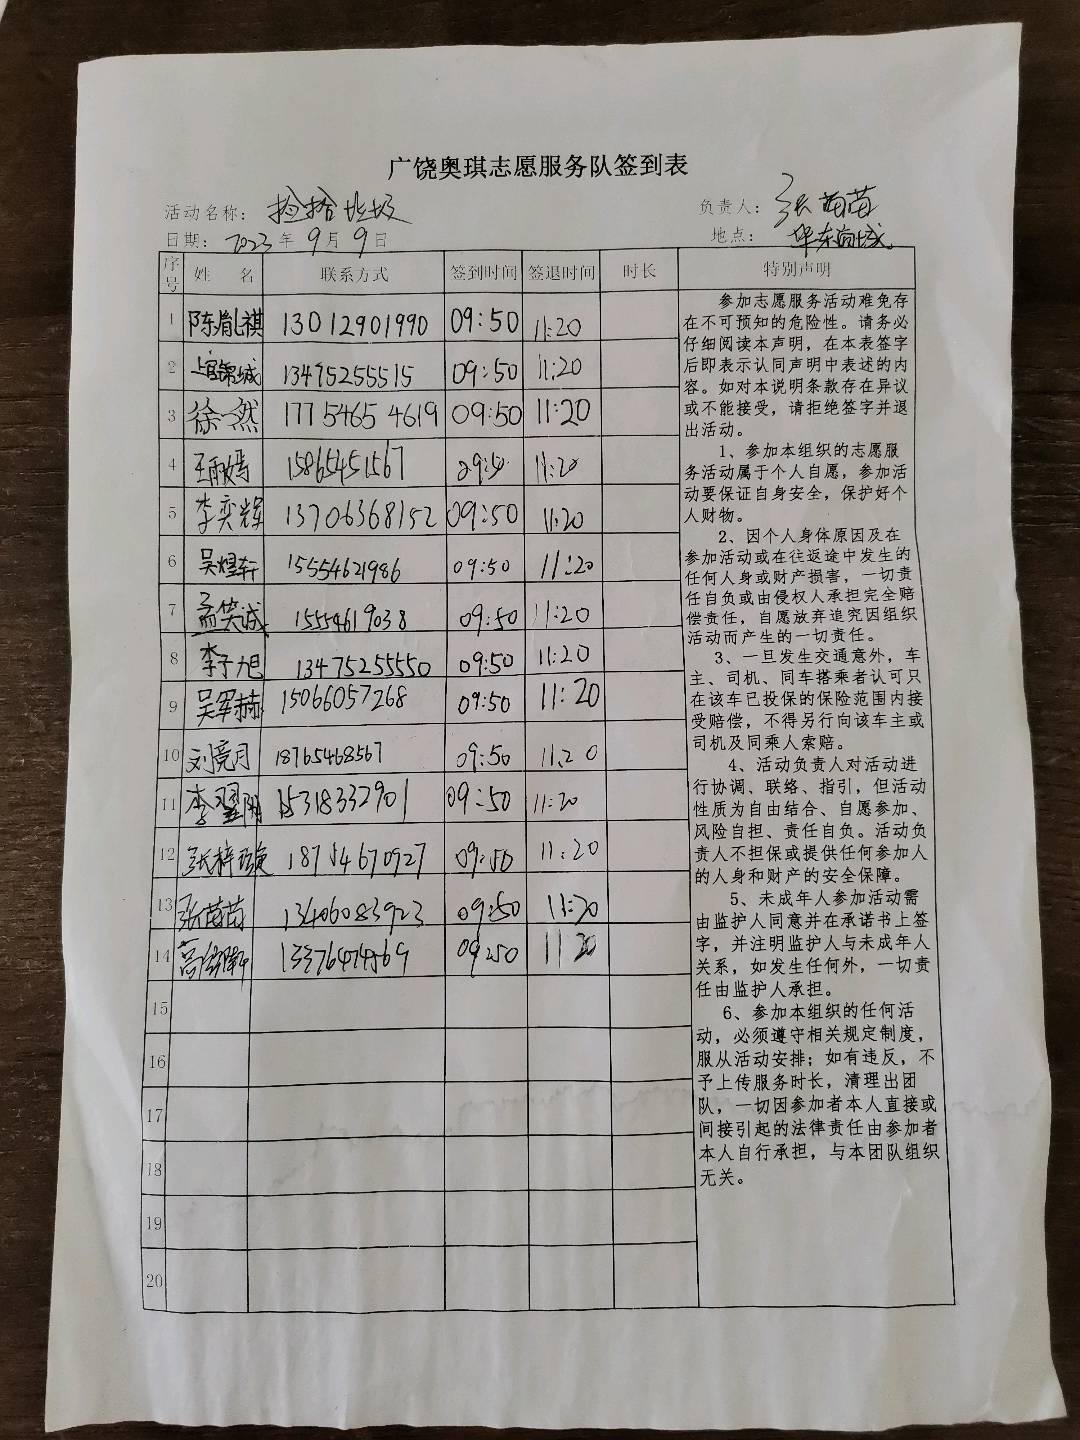 广饶奥琪志愿服务队签到表
活动名称： 捡拾垃圾 负责人： 张苗苗
日期： 2023 年 9 月 9 日 地点： 华东商城
序号 姓 名 联系方式 签到时间 签退时间 时长 特别声明
1 陈胤祺 13012901990 09:50 11:20
2 上官锦城 13475255515 09:50 11:20
3 徐一然 17754654619 09:50 11:20
4 王雨嫣 15865451567 09:50 11:20
5 李奕辉 13706368152 09:50 11:20
6 吴煜轩 15554621986 09:50 11:20
7 孟笑诚 15554619038 09:50 11:20
8 李子旭 13475255550 09:50 11:20
9 吴军赫 15066057268 09:50 11:20
10 刘竞月 18765468567 09:50 11:20
11 李翌阳 15318332901 09:50 11:20
12 张梓璇 18754670927 09:50 11:20
13 张苗苗 13406083923 09:50 11:20
14 09:50 11 20
15
16
17
18
19
20
参加志愿服务活动难免存
在不可预知的危险性。请务必
仔细阅读本声明，在本表签字
后即表示认同声明中表述的内
容。如对本说明条款存在异议
或不能接受，请拒绝签字并退
出活动。
1、参加本组织的志愿服
务活动属于个人自愿，参加活
动要保证自身安全，保护好个
人财物。
2、因个人身体原因及在
参加活动或在往返途中发生的
任何人身或财产损害，一切责
任自负或由侵权人承担完全赔
偿责任，自愿放弃追究因组织
活动而产生的一切责任。
3、一旦发生交通意外，车
主、司机、同车搭乘者认可只
在该车已投保的保险范围内接
受赔偿，不得另行向该车主或
司机及同乘人索赔。
4、活动负责人对活动进
行协调、联络、指引，但活动
性质为自由结合、自愿参加、
风险自担、责任自负。活动负
责人不担保或提供任何参加人
的人身和财产的安全保障。
5、未成年人参加活动需
由监护人同意并在承诺书上签
字，并注明监护人与未成年人
关系，如发生任何外，一切责
任由监护人承担。
6、参加本组织的任何活
动，必须遵守相关规定制度，
服从活动安排；如有违反，不
予上传服务时长，清理出团
队，一切因参加者本人直接或
间接引起的法律责任由参加者
本人自行承担，与本团队组织
无关。